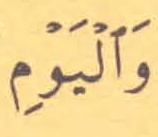 وَٱلْيَوْمِ